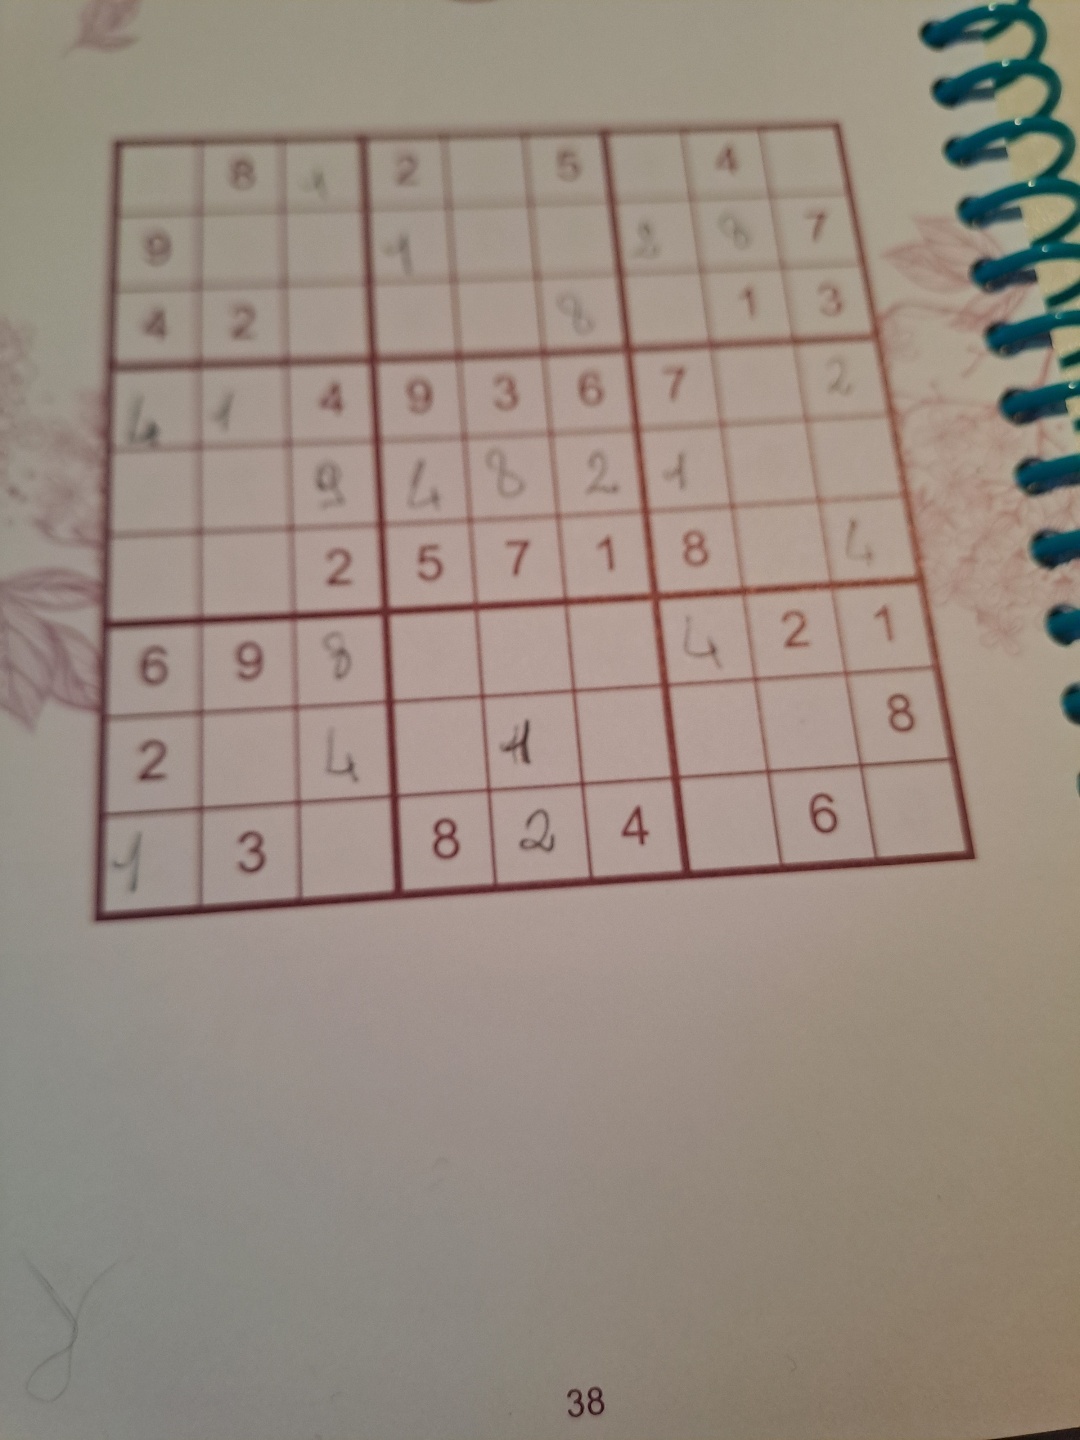 8 1 2 5 4
9 1 2 8 7
4 2 8 1 3
4 1 4 9 3 6 7 2
9 4 8 2 1
2 5 7 1 8 4
6 9 8 4 2 1
2 4 1 8
1 3 8 2 4 6
38